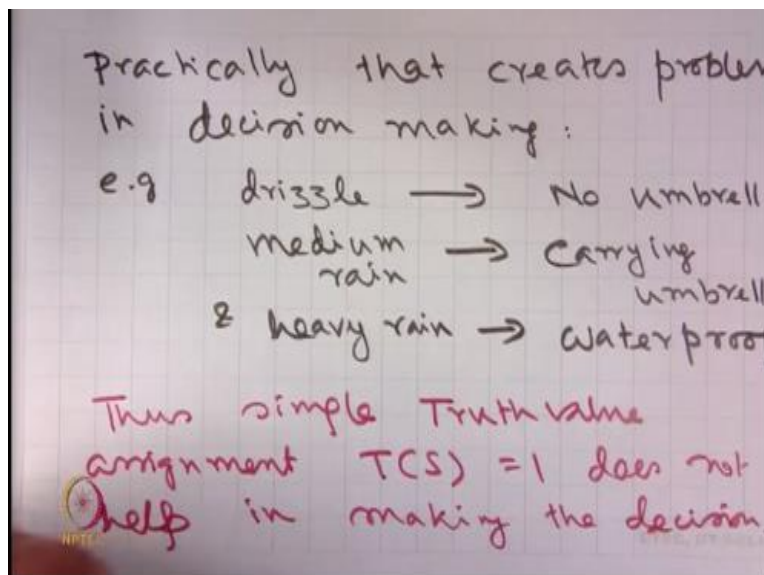 Practically that creates problem
in decision making:
e.g drizzle → No umbrell
medium → Carrying
rain umbrell
& heavy rain → waterproo
Thus simple Truth value
assignment T(S) = 1 does not
help in making the decision
NPTEL